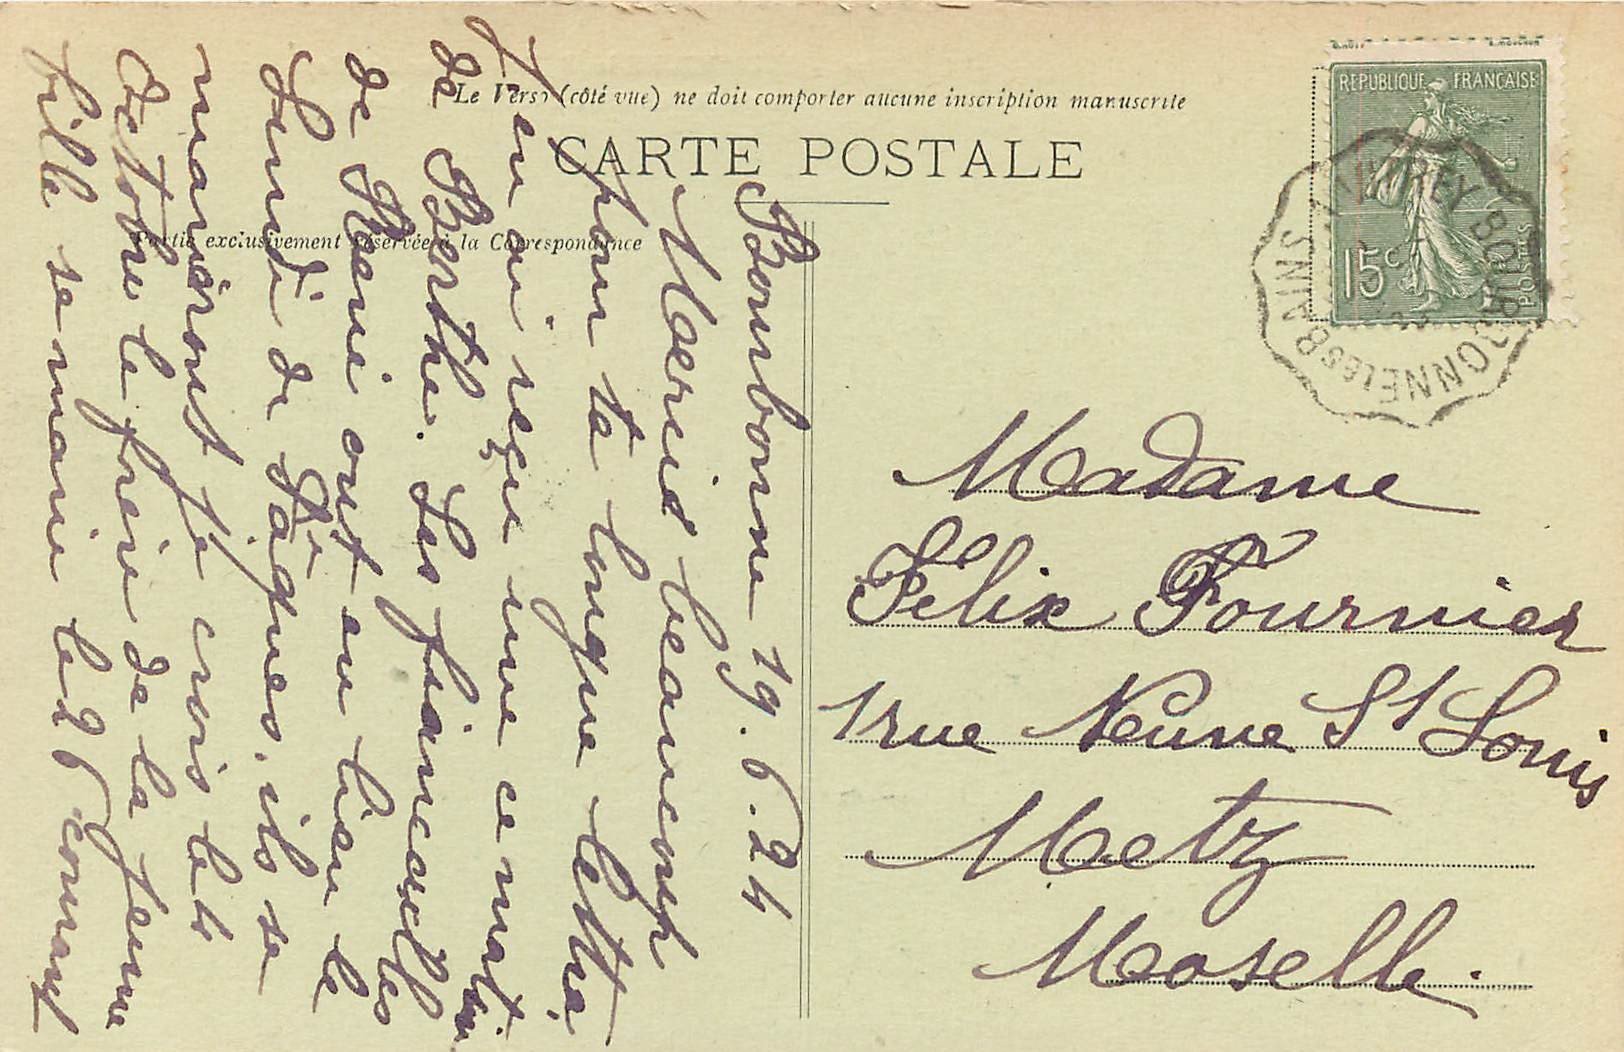 Le Verso (côté vue) ne doit comporter aucune inscription manuscrite
CARTE POSTALE
Partie exclusivement réservée à la Correspondance
REPUBLIQUE FRANÇAISE
15c
POSTES
VITREY BOURBONNE LES BAINS
Bourbonne 19.6.24
Merci beaucoup
pour ta longue lettre
J'en ai reçu une ce matin
de Berthe. Les fiançailles
de René ont eu lieu le
Lundi de Pâques, ils se
marieront je crois le
Octobre le frère de la jeune
fille se marie le 26 courant
Madame
Félix Fournier
1 rue Neuve St Louis
Metz
Moselle.